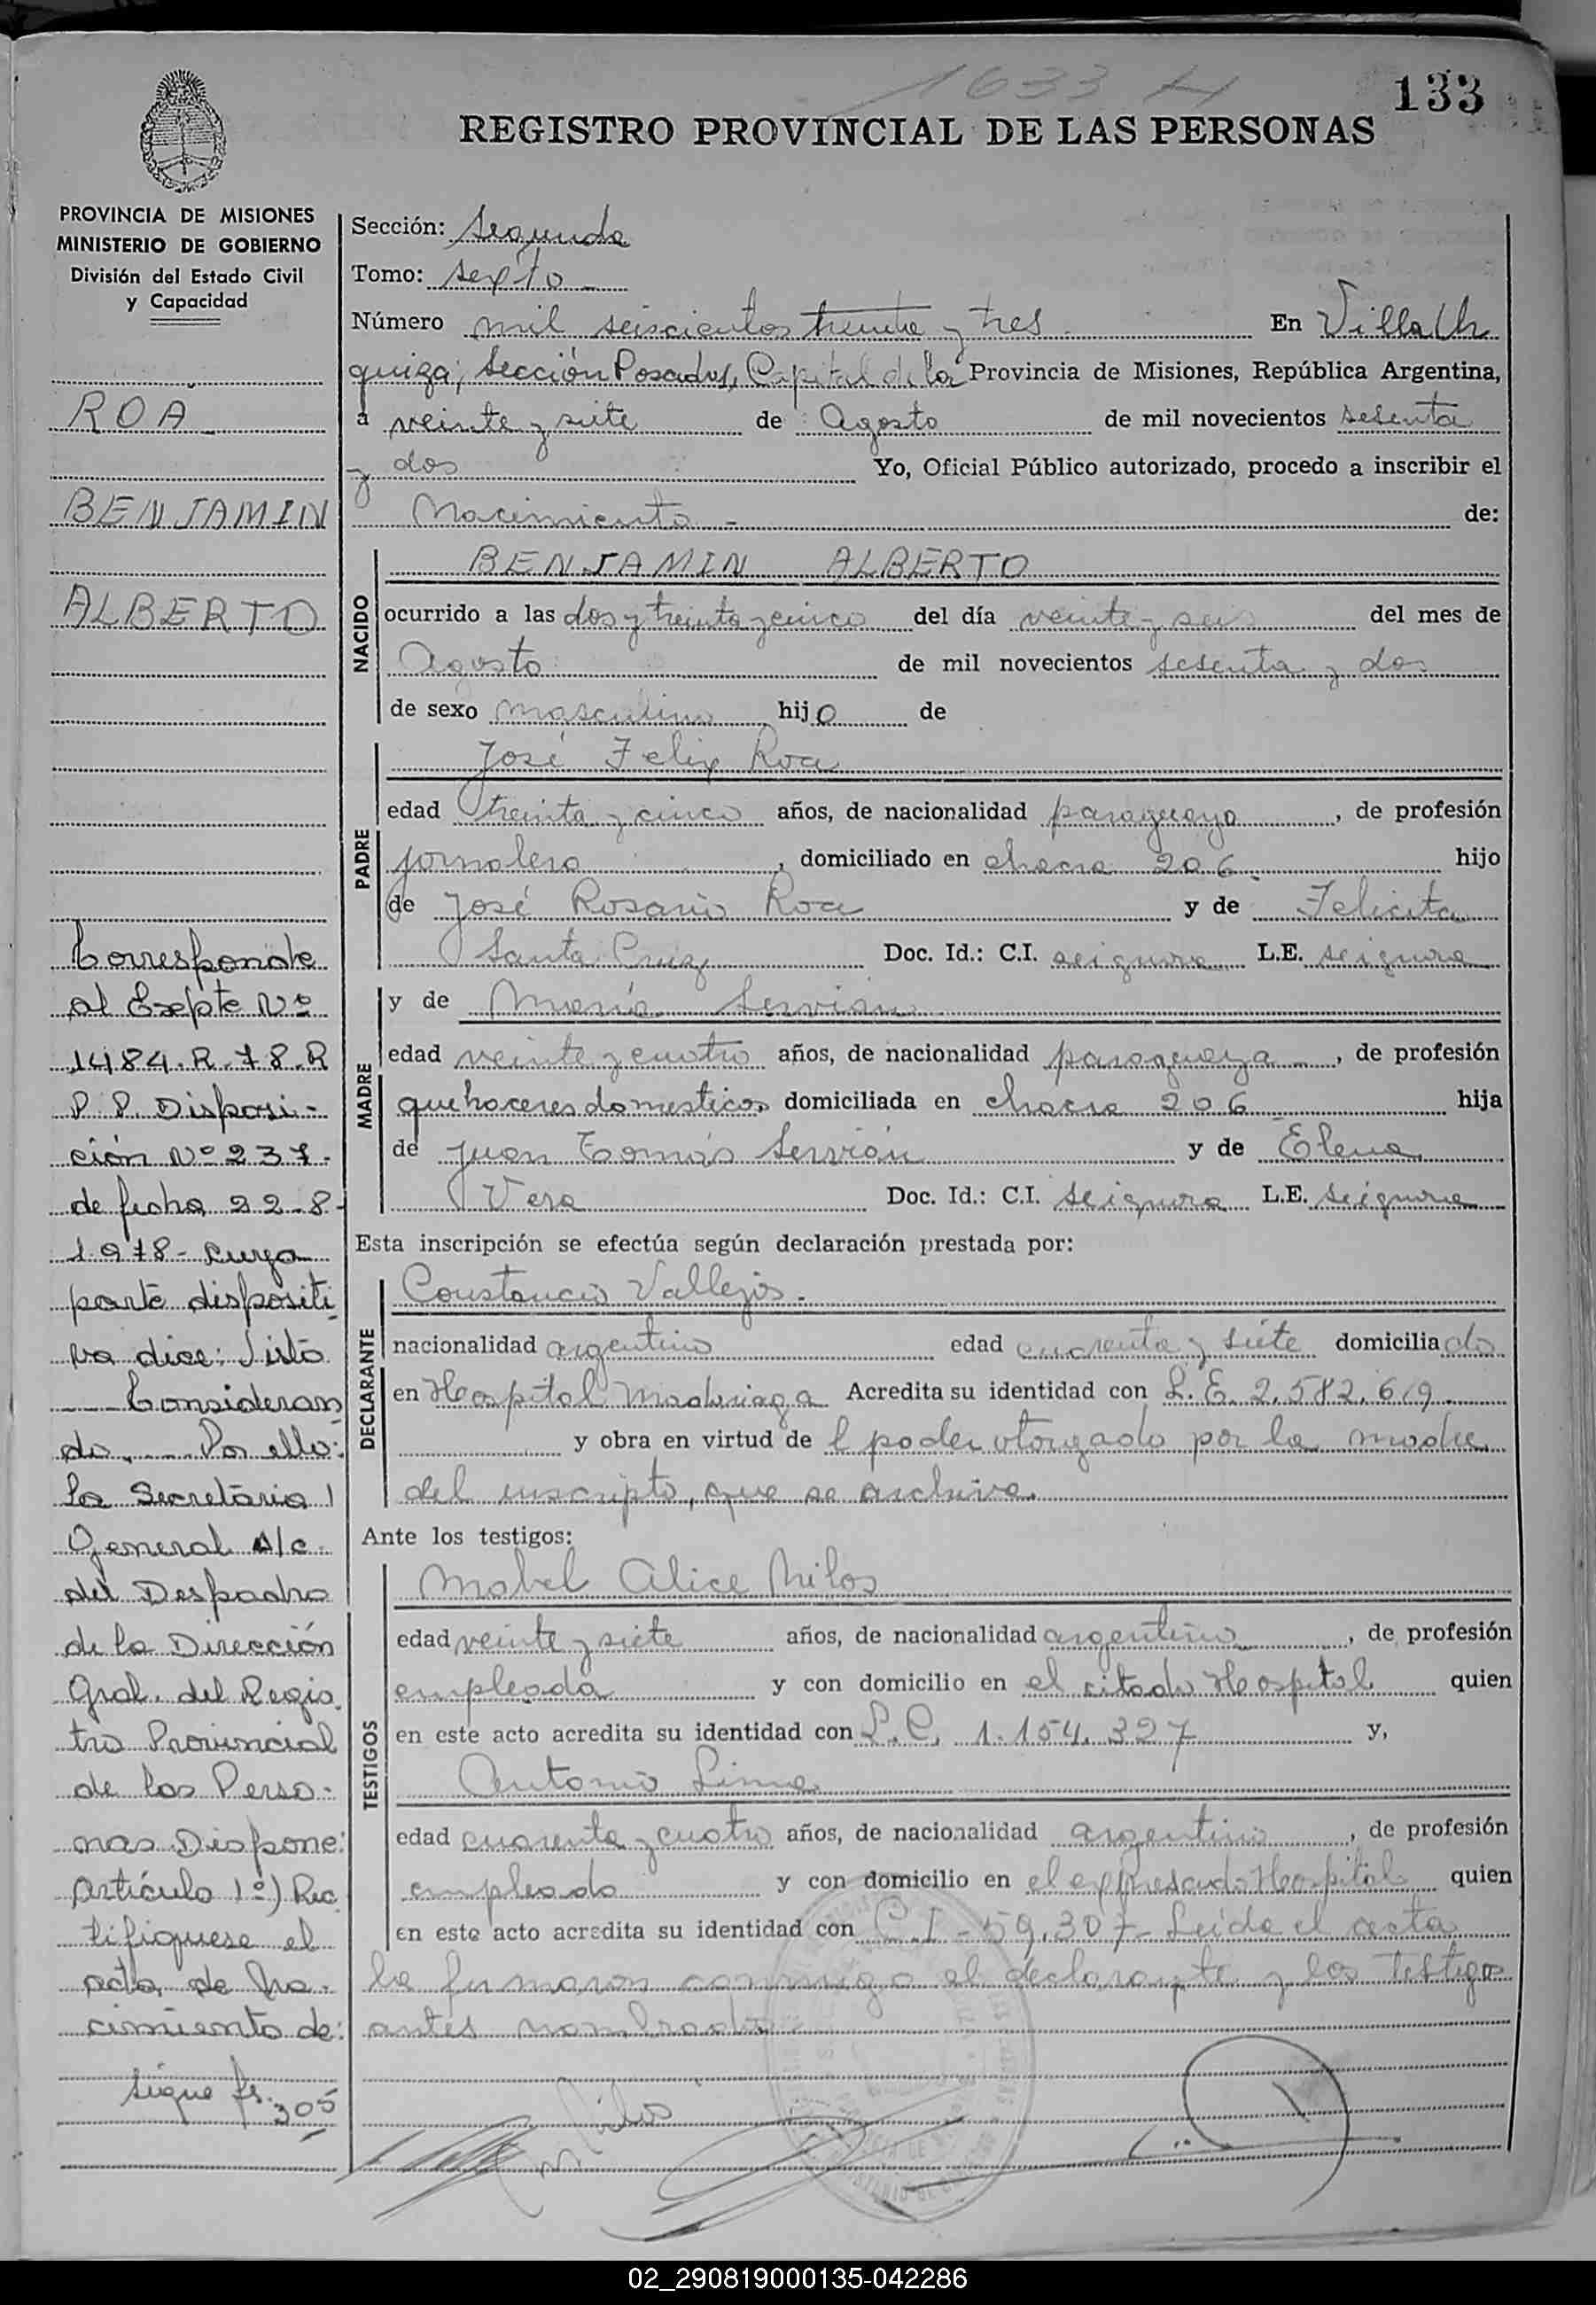 1633 H
133
REGISTRO PROVINCIAL DE LAS PERSONAS
PROVINCIA DE MISIONES
MINISTERIO DE GOBIERNO
División del Estado Civil
y Capacidad
ROA
BENJAMIN
ALBERTO
Corresponde
al Expte Nº
1484.R.78.R
P.P. Disposi-
ción Nº 237-
de fecha 22-8-
1978- cuya
parte dispositi
va dice: Visto
---- Consideran
do, ---- Por ello:
la Secretaria
General A/c
del Despacho
de la Dirección
Gral. del Regis
tro Provincial
de las Perso-
nas Dispone:
Artículo 1º) Rec
tifiquese el
acta de na-
cimiento de:
sigue fs. 305
Sección: Segunda
Tomo: sexto
Número mil seiscientos treinta y tres En Villa Ur
quiza, Sección Posadas, Capital de la Provincia de Misiones, República Argentina,
a veinte y siete de Agosto de mil novecientos sesenta
y dos Yo, Oficial Público autorizado, procedo a inscribir el
Nacimiento - de:
NACIDO
BENJAMIN ALBERTO
ocurrido a las dos y treinta y cinco del día veinte y seis del mes de
Agosto de mil novecientos sesenta y dos
de sexo masculino hijo de
PADRE
José Felix Roa
edad treinta y cinco años, de nacionalidad paraguaya, de profesión
jornalero, domiciliado en chacra 206 hijo
de José Rosario Roa y de Felicita
Santa Cruz Doc. Id.: C.I. se ignora L.E. se ignora
MADRE
y de María Servian
edad veinte y cuatro años, de nacionalidad paraguaya, de profesión
quehaceres domesticos domiciliada en chacra 206 hija
de Juan Tomás Servián y de Elena
Vera Doc. Id.: C.I. se ignora L.E. se ignora
Esta inscripción se efectúa según declaración prestada por:
DECLARANTE
Constancio Vallejos.
nacionalidad argentino edad cuarenta y siete domiciliado
en Hospital Madariaga Acredita su identidad con L.E. 2.582.619
y obra en virtud de l poder otorgado por la madre
del inscripto, que se archiva.
Ante los testigos:
TESTIGOS
Mabel Alice Milos
edad veinte y siete años, de nacionalidad argentina, de profesión
empleada y con domicilio en el citado Hospital quien
en este acto acredita su identidad con L.C. 1.154.327 y,
Antonio Lima
edad cuarenta y cuatro años, de nacionalidad argentino, de profesión
empleado y con domicilio en el expresado Hospital quien
en este acto acredita su identidad con C.I - 59.307- Leída el acta
la firmaron conmigo el declarante y los testigos
antes nombrados
02_290819000135-042286